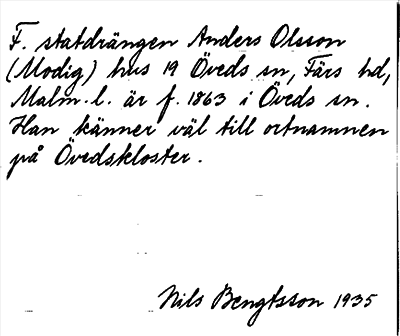 F. statdrängen Anders Olsson
(Modig) hus 19 Öveds sn, Färs hd,
Malm. l. är f. 1863 i Öveds sn.
Han känner väl till ortnamnen
på Övedskloster.
Nils Bengtsson 1935